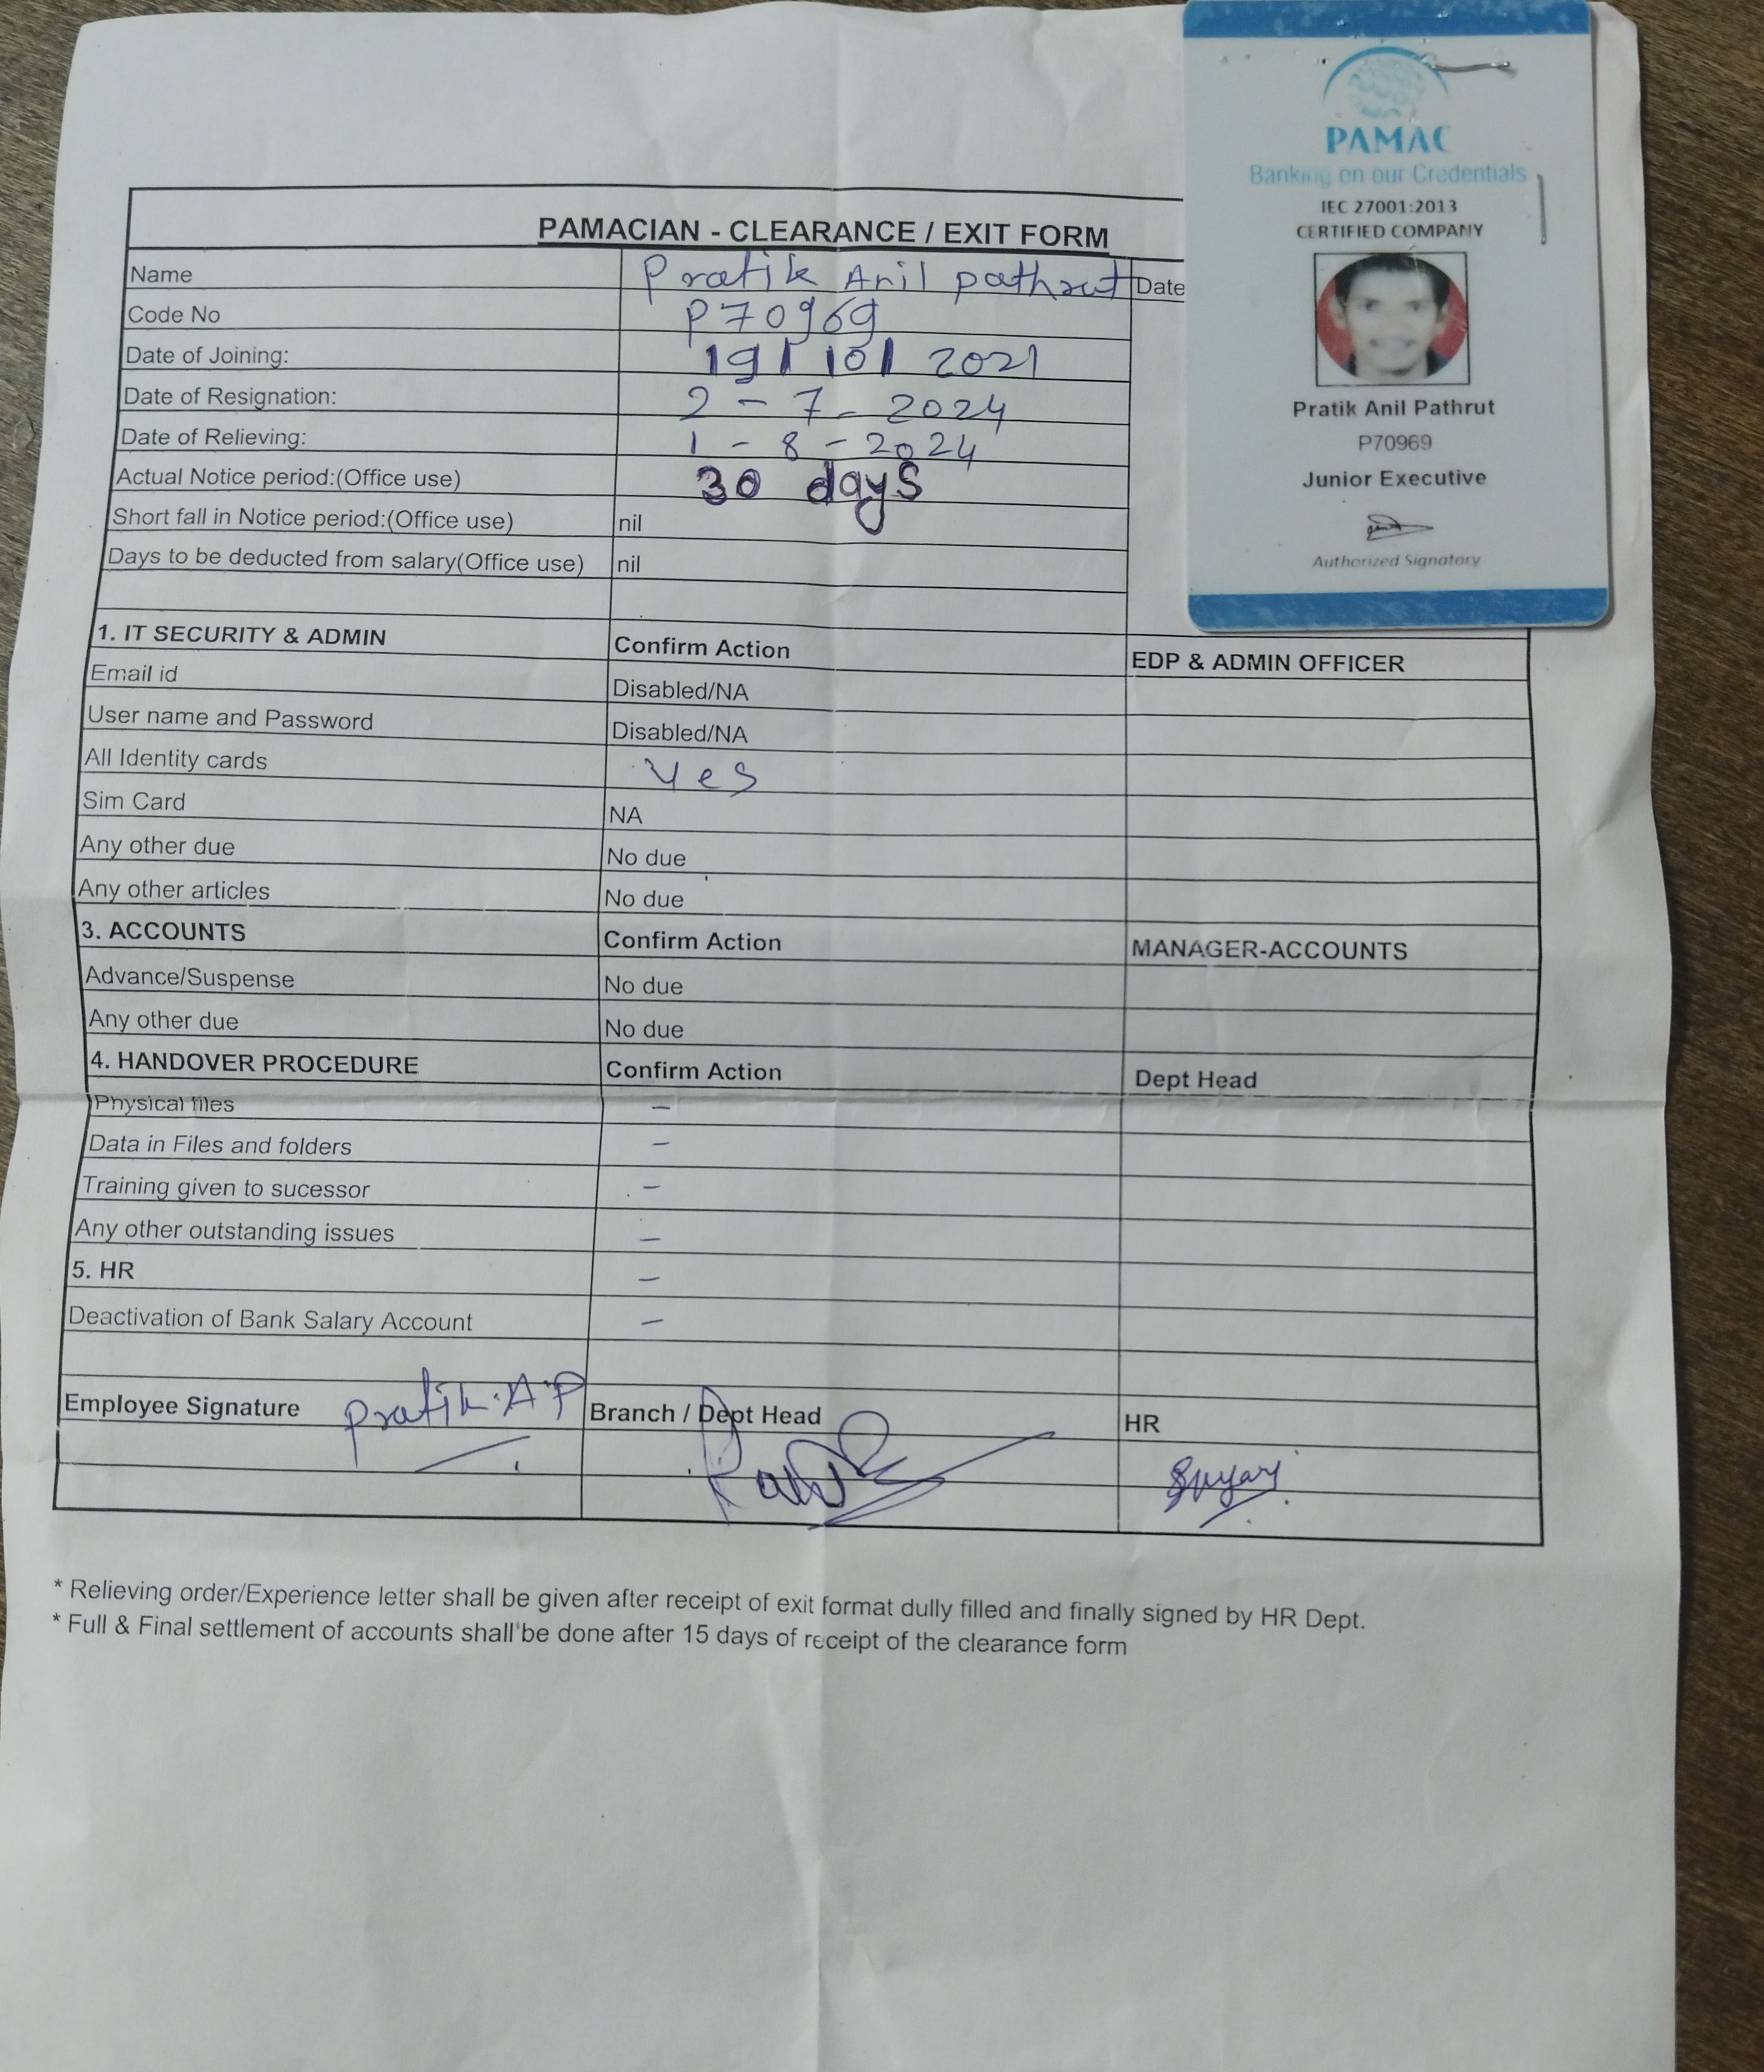 PAMAC
Banking on our Credentials
IEC 27001:2013
CERTIFIED COMPANY
Pratik Anil Pathrut
P70969
Junior Executive
Authorized Signatory
PAMACIAN - CLEARANCE / EXIT FORM
Name Pratik Anil pathrut Date
Code No P70969
Date of Joining: 19/10/2021
Date of Resignation: 2-7-2024
Date of Relieving: 1-8-2024
Actual Notice period:(Office use) 30 days
Short fall in Notice period:(Office use) nil
Days to be deducted from salary(Office use) nil
1. IT SECURITY & ADMIN Confirm Action EDP & ADMIN OFFICER
Email id Disabled/NA
User name and Password Disabled/NA
All Identity cards Yes
Sim Card NA
Any other due No due
Any other articles No due
3. ACCOUNTS Confirm Action MANAGER-ACCOUNTS
Advance/Suspense No due
Any other due No due
4. HANDOVER PROCEDURE Confirm Action Dept Head
Physical files -
Data in Files and folders -
Training given to sucessor -
Any other outstanding issues -
5. HR -
Deactivation of Bank Salary Account -
Employee Signature pratik.A.P Branch / Dept Head HR
* Relieving order/Experience letter shall be given after receipt of exit format dully filled and finally signed by HR Dept.
* Full & Final settlement of accounts shall be done after 15 days of receipt of the clearance form